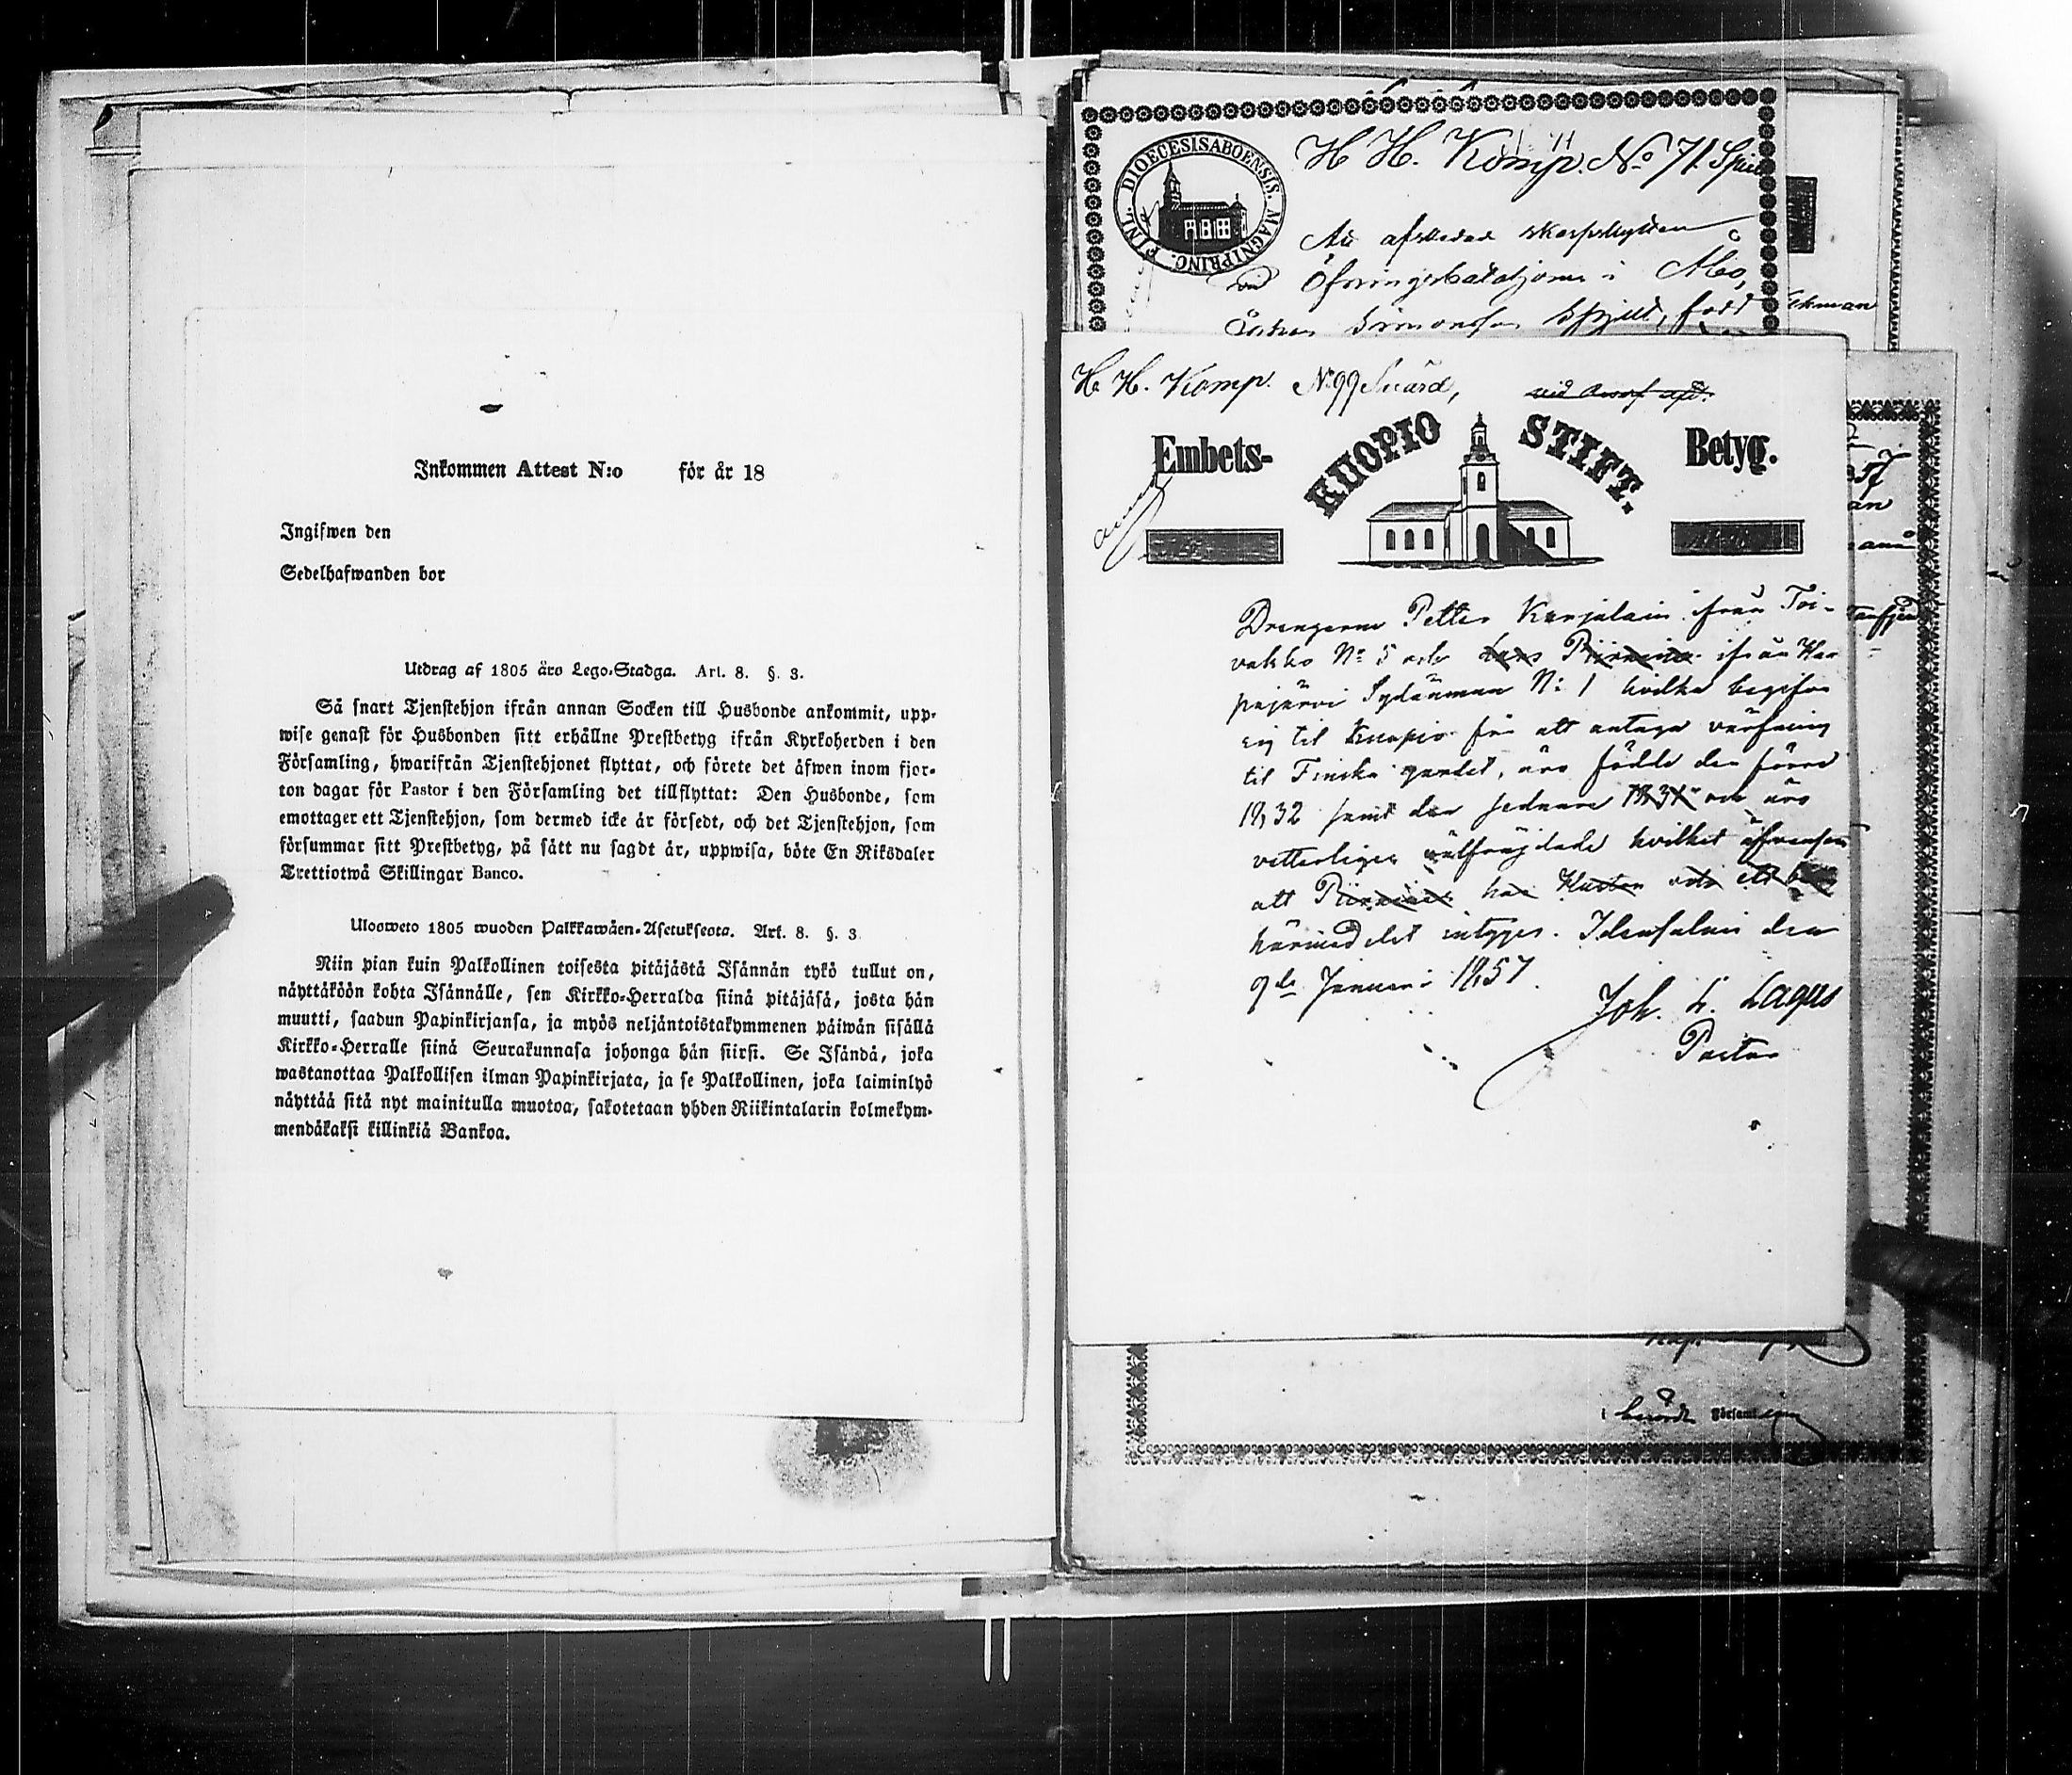 Inkommen Attest N:o för år 18
Ingifwen den
Sedelhafwanden bor
Utdrag af 1805 års Lego-Stadga. Art. 8. §. 3.
Så snart Tjenstehjon ifrån annan Socken till Husbonde ankommit, upp-
wise genast för Husbonden sitt erhållne Prestbetyg ifrån Kyrkoherden i den
Församling, hwarifrån Tjenstehjonet flyttat, och förete det äfwen inom fjor-
ton dagar för Pastor i den Församling det tillflyttat: Den Husbonde, som
emottager ett Tjenstehjon, som dermed icke är försedt, och det Tjenstehjon, som
försummar sitt Prestbetyg, på sätt nu sagdt är, uppwisa, böte En Riksdaler
Trettiotwå Skillingar Banco.
Ulosweto 1805 wuoden Palkkawäen-Asetuksesta. Art. 8. §. 3
Niin pian kuin Palkollinen toisesta pitäjästä Isännän tykö tullut on,
näyttäköön kohta Isännälle, sen Kirkko-Herralda siinä pitäjäsä, josta hän
muutti, saadun Papinkirjansa, ja myös neljäntoistakymmenen päiwän sisällä
Kirkko-Herralle siinä Seurakunnasa johonga hän siirsi. Se Isändä, joka
wastanottaa Palkollisen ilman Papinkirjata, ja se Palkollinen, joka laiminlyö
näyttää sitä nyt mainitulla muotoa, sakotetaan yhden Riikintalarin kolmekym-
mendäkaksi killinkiä Bankoa.
DIOECESIS ABOENSIS. MAGNI PRINC. FINL.
H H. Komp. No 71.
afskedade skarpskytten
vid Öfningsbataljonen i Åbo,
Simonsson född
ekman
H. H. Komp. No 99 Svärd,
Embets- KUOPIO STIFT. Betyg.
Drengarne Petter Karjalain ifrån Toi-
vakko No 5 och Lars Piirainen ifrån Har
pajärvi Sydänmaa No 1 hvilka begifva
sig til Kuopio för att antaga värfning
til Finska gardet, äro födde den förre
1832 samt den sednare 1831 och äro
vetterligen välfräjdade hvilket äfvensom
att Piirainen har Hustru och ett
härmedelst intygas. Idensalmi den
9de Januari 1857.
Joh. L. Lagus
Pastor
i Församling